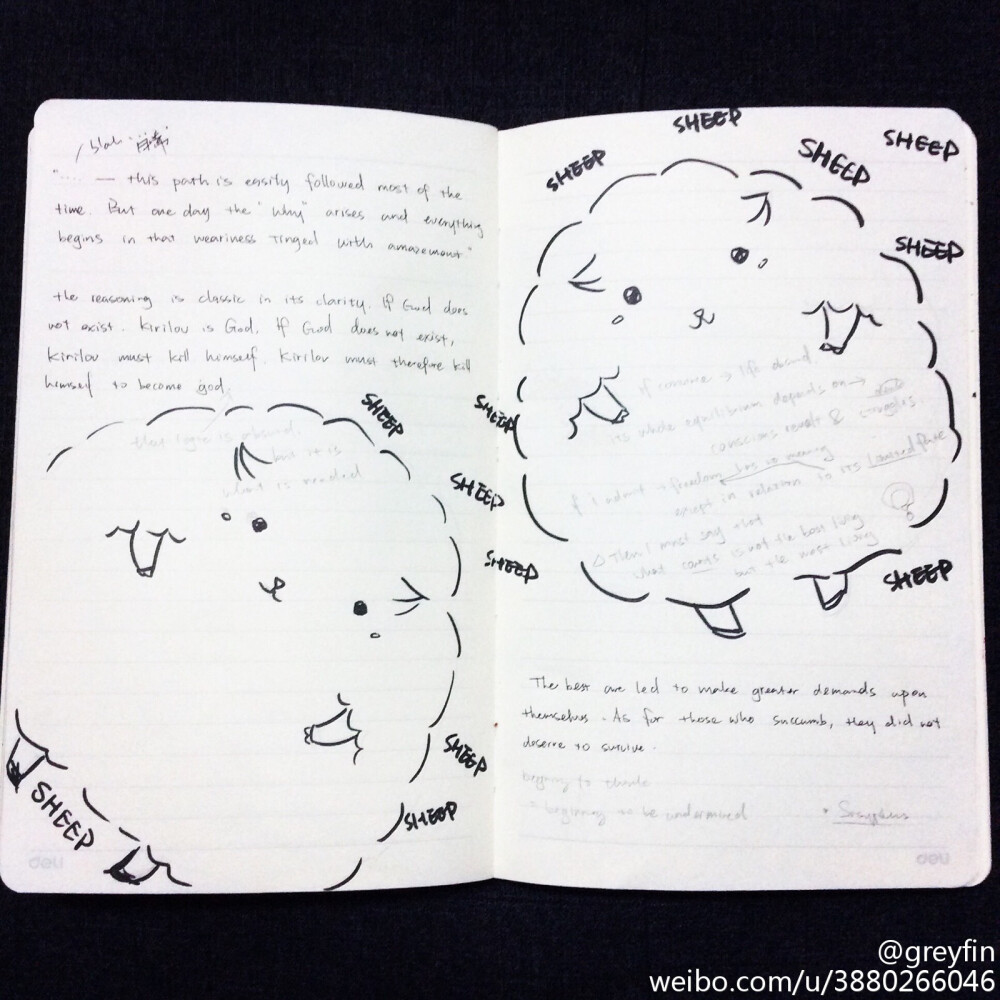 "..... — this path is easily followed most of the
time. But one day the "why" arises and everything
begins in that weariness tinged with amazement"
the reasoning is classic in its clarity. If God does
not exist. Kirilov is God. If God does not exist,
Kirilov must kill himself. Kirilov must therefore kill
himself to become god.
that logic is absurd.
but it is
what is needed
SHEEP
SHEEP
SHEEP
SHEEP
SHEEP
SHEEP
deli
SHEEP
SHEEP
SHEEP
SHEEP
SHEEP
SHEEP
If convince → life absurd,
its whole equilibrium depends on →
conscious revolt &
If I admit → freedom has no meaning
except in relation to its limited fate
△ Then I must say that
what counts is not the best living
but the most living
SHEEP
The best are led to make greater demands upon
themselves. As for those who succumb, they did not
deserve to survive.
beginning to think
= beginning to be undermined
• Sisyphus
deli
@greyfin
weibo.com/u/3880266046